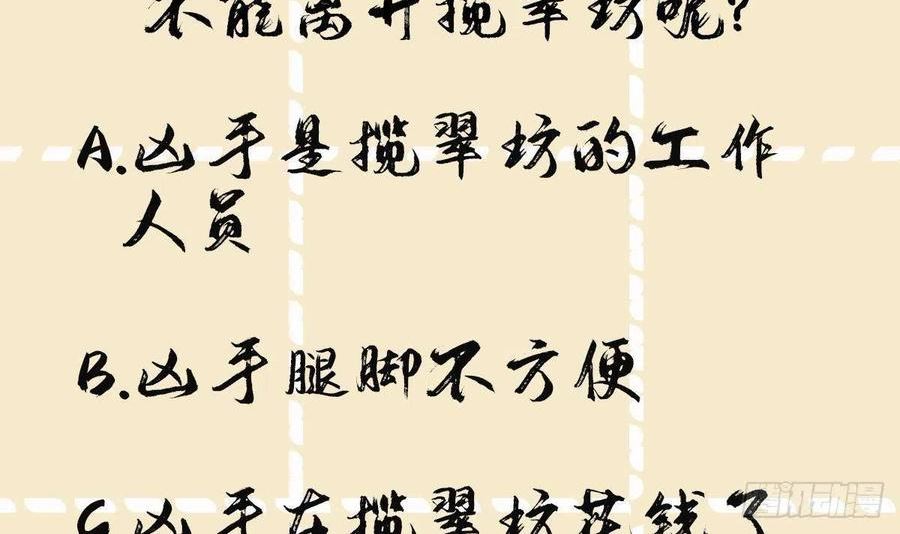 不能离开揽翠坊呢？
A.凶手是揽翠坊的工作
人员
B.凶手腿脚不方便
C.凶手在揽翠坊花钱了
腾讯动漫